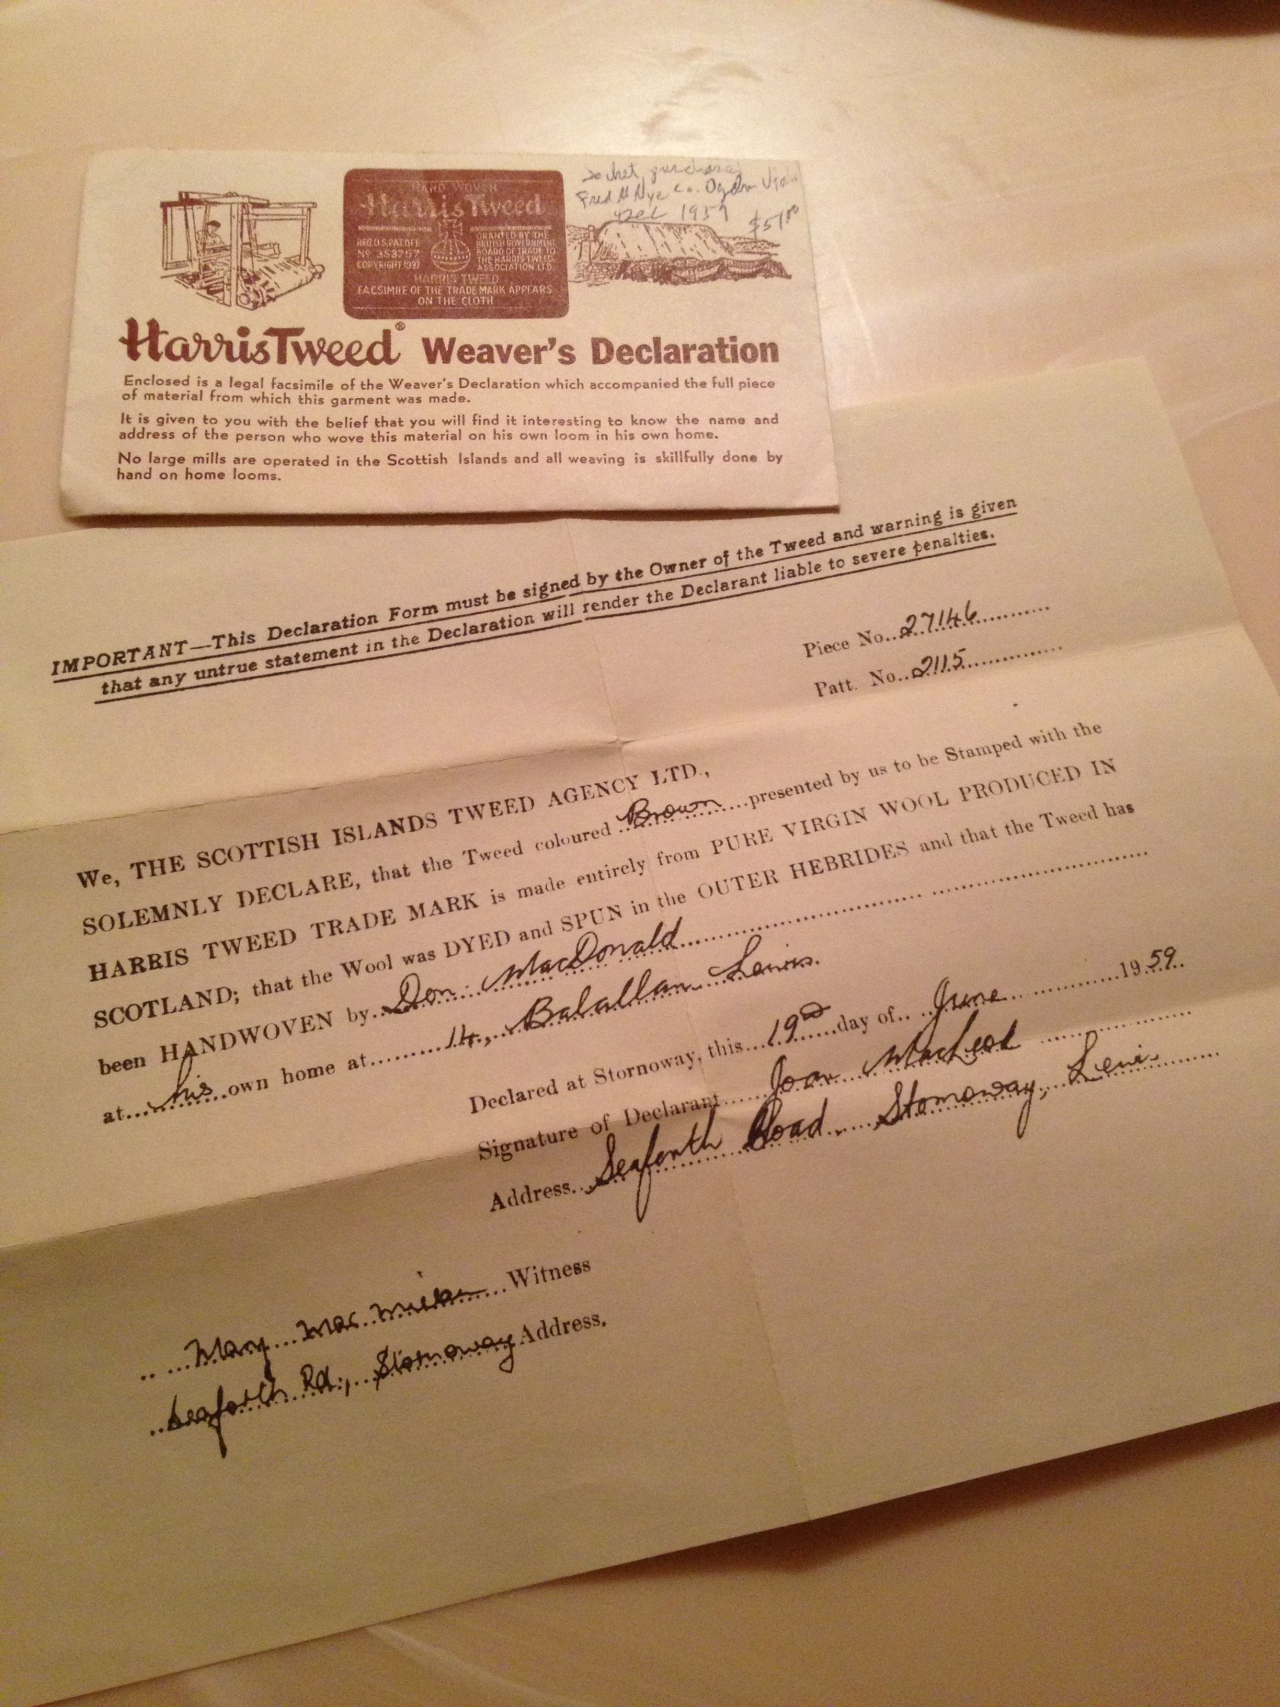 Fred M Nye Co. Ogden Utah
Dec 1959
HAND WOVEN
Harris Tweed
REG. U.S. PAT. OFF.
No 353757
COPYRIGHT 1937
GRANTED BY THE
BRITISH GOVERNMENT
BOARD OF TRADE TO
THE HARRIS TWEED
ASSOCIATION LTD.
HARRIS TWEED
FACSIMILE OF THE TRADE MARK APPEARS
ON THE CLOTH
Harris Tweed® Weaver's Declaration
Enclosed is a legal facsimile of the Weaver's Declaration which accompanied the full piece
of material from which this garment was made.
It is given to you with the belief that you will find it interesting to know the name and
address of the person who wove this material on his own loom in his own home.
No large mills are operated in the Scottish Islands and all weaving is skillfully done by
hand on home looms.
IMPORTANT—This Declaration Form must be signed by the Owner of the Tweed and warning is given
that any untrue statement in the Declaration will render the Declarant liable to severe penalties.
Piece No. 27146
Patt. No. 2115
We, THE SCOTTISH ISLANDS TWEED AGENCY LTD.,
SOLEMNLY DECLARE, that the Tweed coloured Brown presented by us to be Stamped with the
HARRIS TWEED TRADE MARK is made entirely from PURE VIRGIN WOOL PRODUCED IN
SCOTLAND; that the Wool was DYED and SPUN in the OUTER HEBRIDES and that the Tweed has
been HANDWOVEN by Don. MacDonald
at his own home at 14, Balallan Lewis.
Declared at Stornoway, this 19th day of June 1959.
Signature of Declarant Joan MacLeod
Address Seaforth Road, Stornoway, Lewis
Mary Witness
Seaforth Rd., Stornoway Address.